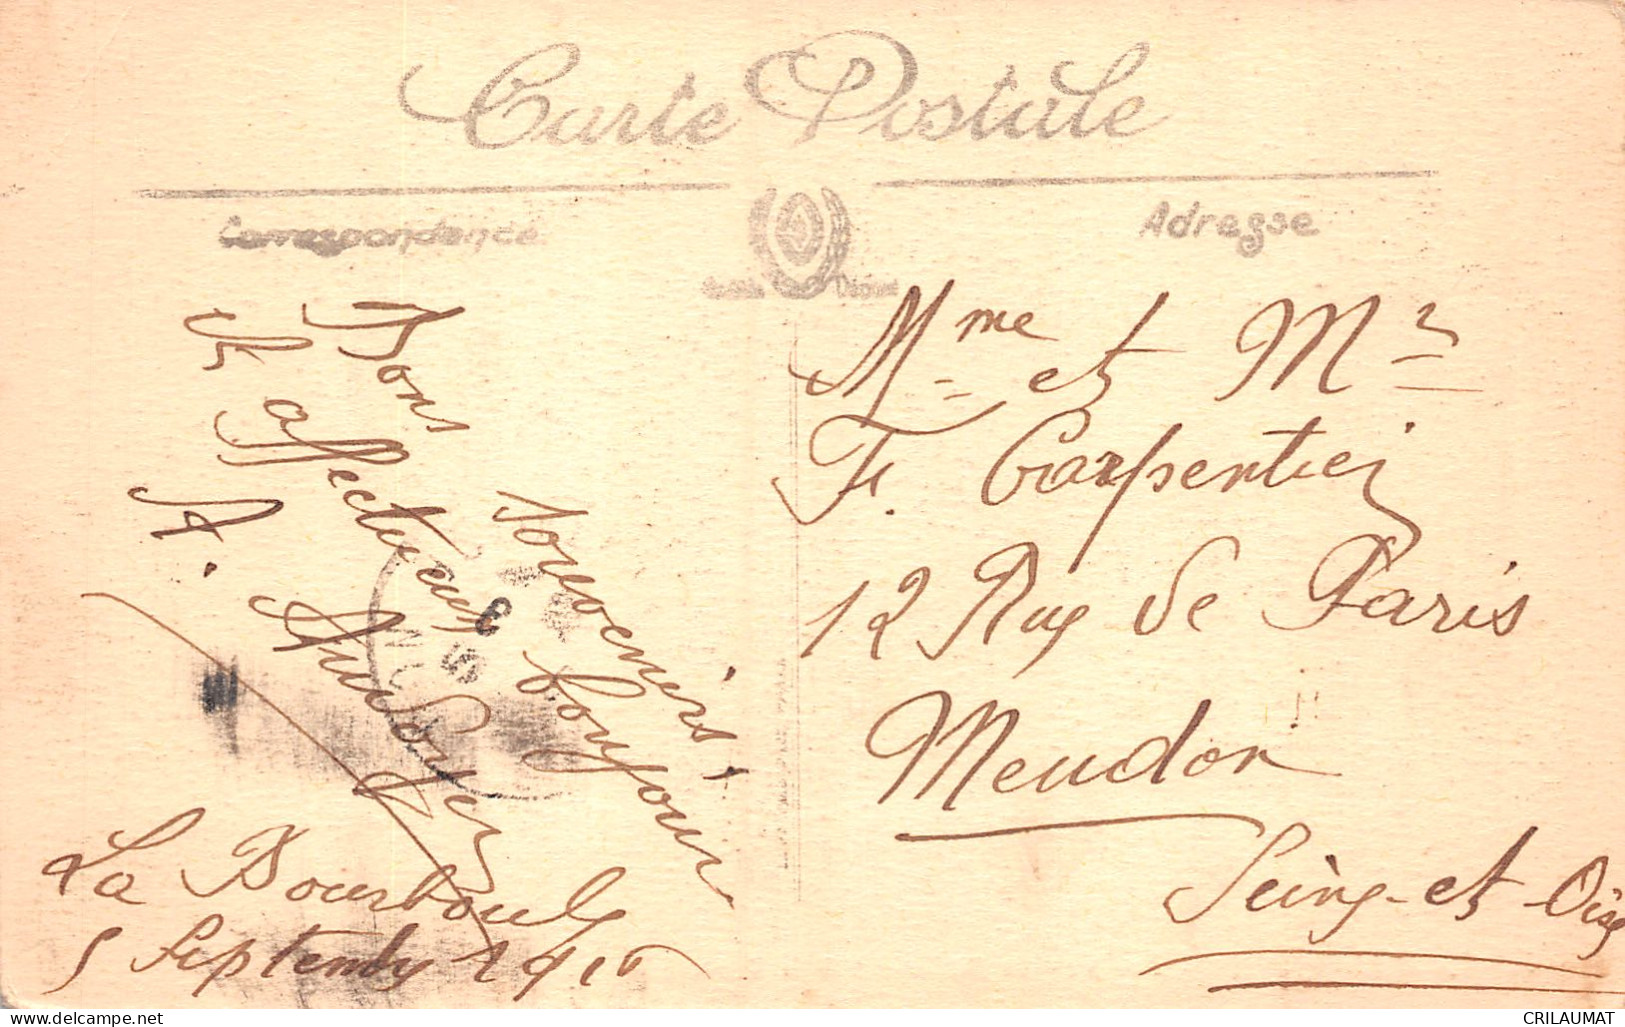 Carte Postale
Correspondance
Adresse
Bons souvenirs.
et affectueux bonjour
A.
La Bourboule
5 Septembre 1916
Mme et Mr
F. Carpentier
12 Rue de Paris
Meudon
Seine-et-Oise
CRILAUMAT